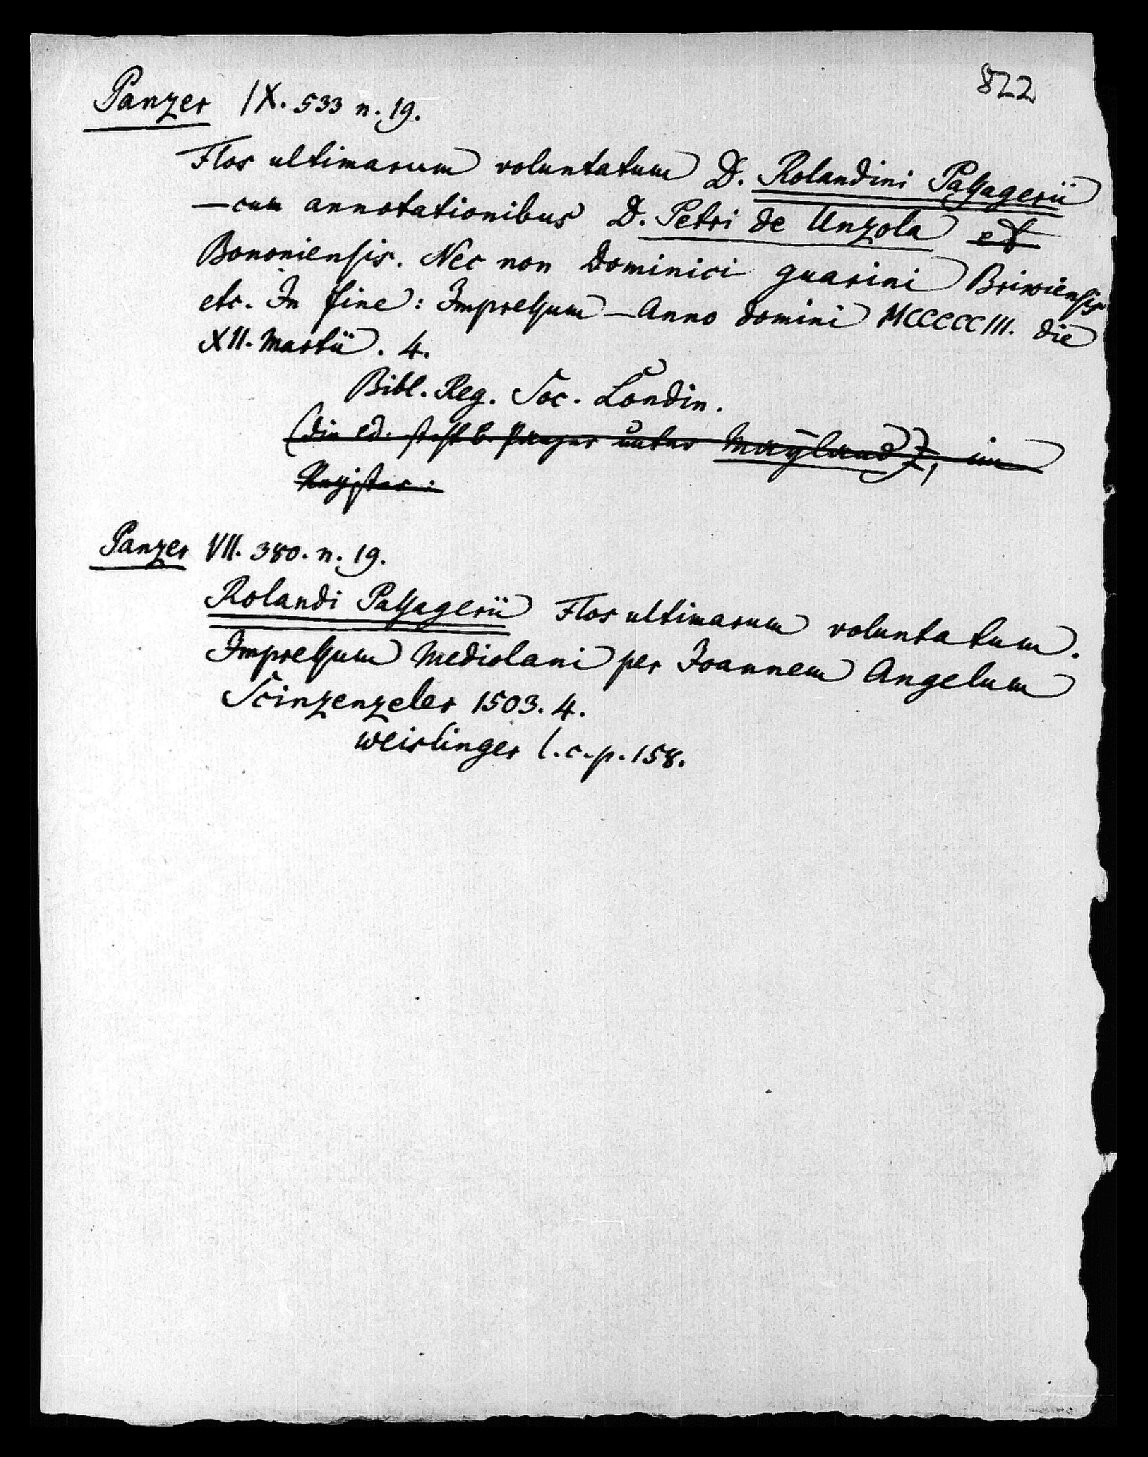 822
Panzer IX. 533 n. 19.
Flos ultimarum voluntatum D. Rolandini Passagerii
—cum annotationibus D. Petri de Unzola et
Bononiensis. Nec non Dominici guarini Briwiensis
etc. In fine: Impressum — Anno domini MCCCCCIII. die
XII. Martii. 4.
Bibl. Reg. Soc. Londin.
(die ed. steht b. Panzer unter Mayland), im
Register:
Panzer VII. 380. n. 19.
Rolandi Passagerii Flos ultimarum voluntatum.
Impressum Mediolani per Joannem Angelum
Scinzenzeler 1503. 4.
Weislinger l. c. p. 158.